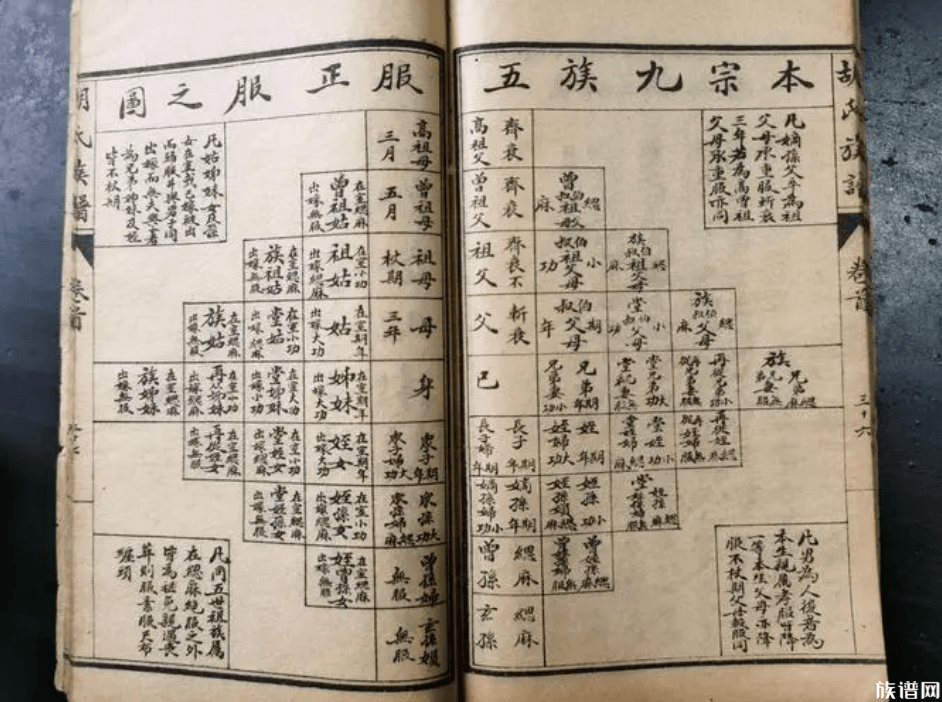 胡氏族譜
卷首
三十六
本宗九族五服正服之圖
凡嫡孫父卒為祖
父母承重服斬衰
三年若為高曾祖
父母承重服亦同
齊衰
高祖父
高祖母
三月
凡姑姊妹女及孫
女在室或已嫁被出
而歸服並與男子同
出嫁而無夫與子者
為兄弟姊妹及姪
皆不杖期
曾伯叔祖父母 緦麻
齊衰
曾祖父
曾祖母
五月
在室緦麻
曾祖姑
出嫁無服
族伯叔祖父母 緦麻
伯叔祖父母 小功
齊衰不
祖父
祖母
杖期
在室小功
祖姑
出嫁緦麻
在室緦麻
族祖姑
出嫁無服
族伯叔父母 緦麻
堂伯叔父母 小功
伯叔父母 期年
斬衰
父
母
三年
在室期年
姑
出嫁大功
在室小功
堂姑
出嫁緦麻
在室緦麻
族姑
出嫁無服
族兄弟緦麻
族兄弟妻無服
再從兄弟小功
再從兄弟妻無服
堂兄弟大功
堂兄弟妻緦麻
兄弟期年
兄弟妻小功
己
身
在室期年
姊妹
出嫁大功
在室大功
堂姊妹
出嫁小功
在室小功
再從姊妹
出嫁緦麻
在室緦麻
族姊妹
出嫁無服
再從姪緦麻
再從姪婦無服
堂姪小功
堂姪婦緦麻
姪期年
姪婦大功
長子期年
長子婦期年
眾子期年
眾子婦大功
在室期年
姪女
出嫁大功
在室小功
堂姪女
出嫁緦麻
在室緦麻
再從姪女
出嫁無服
堂姪孫緦麻
堂姪孫婦無服
姪孫小功
姪孫婦緦麻
嫡孫期年
嫡孫婦小功
眾孫大功
眾孫婦緦麻
在室小功
姪孫女
出嫁緦麻
在室緦麻
堂姪孫女
出嫁無服
曾姪孫緦麻
曾姪孫婦無服
緦麻
曾孫
曾孫婦
無服
在室緦麻
姪曾孫女
出嫁無服
凡男為人後者為
本生親屬孝服皆降
一等本生父母亦降
服不杖期父母報服同
緦麻
玄孫
玄孫婦
無服
凡同五世祖族屬
在緦麻絕服之外
皆為袒免親遇喪
葬則服素服尺布
纏頭
胡氏族譜
卷首
族谱网